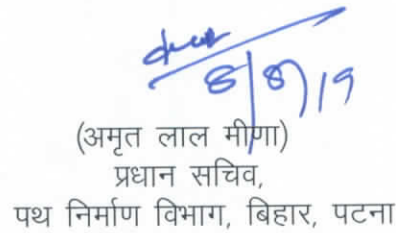 8/8/19
(अमृत लाल मीणा)
प्रधान सचिव,
पथ निर्माण विभाग, बिहार, पटना